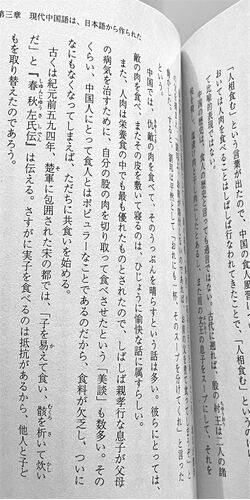 「人相食む」という言葉が出たので、中国の食人風習に
おいては人肉を食べることはしばしば行なわれてきたことで、「人相食む」というのは
て比喩的表現ではない。
古代に遡れば、殷の紂王は二人の諸
一杯、そのスープを分けてくれ」と言った
中国では、仇敵の肉を食べて、そのうっぷんを晴らすという話は多い。彼らにとっては、
敵の肉を食べ、またその皮を敷いて寝るのは、ひじょうに愉快な話に属すらしい。
また、人肉は栄養食の中でも最も優れたものとされたので、しばしば親孝行な息子が父母
の病気を治すために、自分の股の肉を切り取って食べさせたという「美談」も数多い。その
くらい、中国人にとって食人とはポピュラーなことであるのだから、食料が欠乏し、ついに
なにもなくなってしまえば、ただちに共食いを始める。
古くは紀元前五九四年、楚軍に包囲された宋の都では、「子を易えて食い、骸を析いて炊い
だ」と『春秋左氏伝』は伝える。さすがに実子を食べるのは抵抗があるから、他人と子ど
もを取り替えたのであろう。
第三章　現代中国語は、日本語から作られた